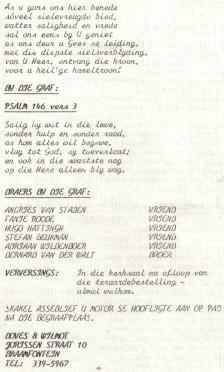 As U guns ons hier benede
sóveel sielevreugde bied,
watter saligheid en vrede
sal ons eens by U geniet
as ons deur U Gees se leiding,
met die diepste sielsverblyding,
van U Heer, ontvang die kroon,
voor U heil'ge hemeltroon!
BY DIE GRAF:
PSALM 146 vers 3
Salig hy wat in die lewe,
sonder hulp en sonder raad,
as hom alles wil begewe,
vlug tot God, sy toeverlaat;
en ook in die swartste nag
op die Here alleen bly wag.
DRAERS BY DIE GRAF:
ANDRIES VAN STADEN VRIEND
FANIE ROODE VRIEND
HUGO HATTINGH VRIEND
STEFAN BEUKMAN VRIEND
ADRIAAN WILDENBOER VRIEND
BERNARD VAN DER WALT BROER
VERVERSINGS: In die kerksaal na afloop van
die teraardebestelling -
almal welkom.
SKAKEL ASSEBLIEF U MOTOR SE HOOFLIGTE AAN OP PAD
NA DIE BEGRAAFPLAAS.
DOVES & WILMOT
JORISSEN STRAAT 10
BRAAMFONTEIN
TEL: 339-5967